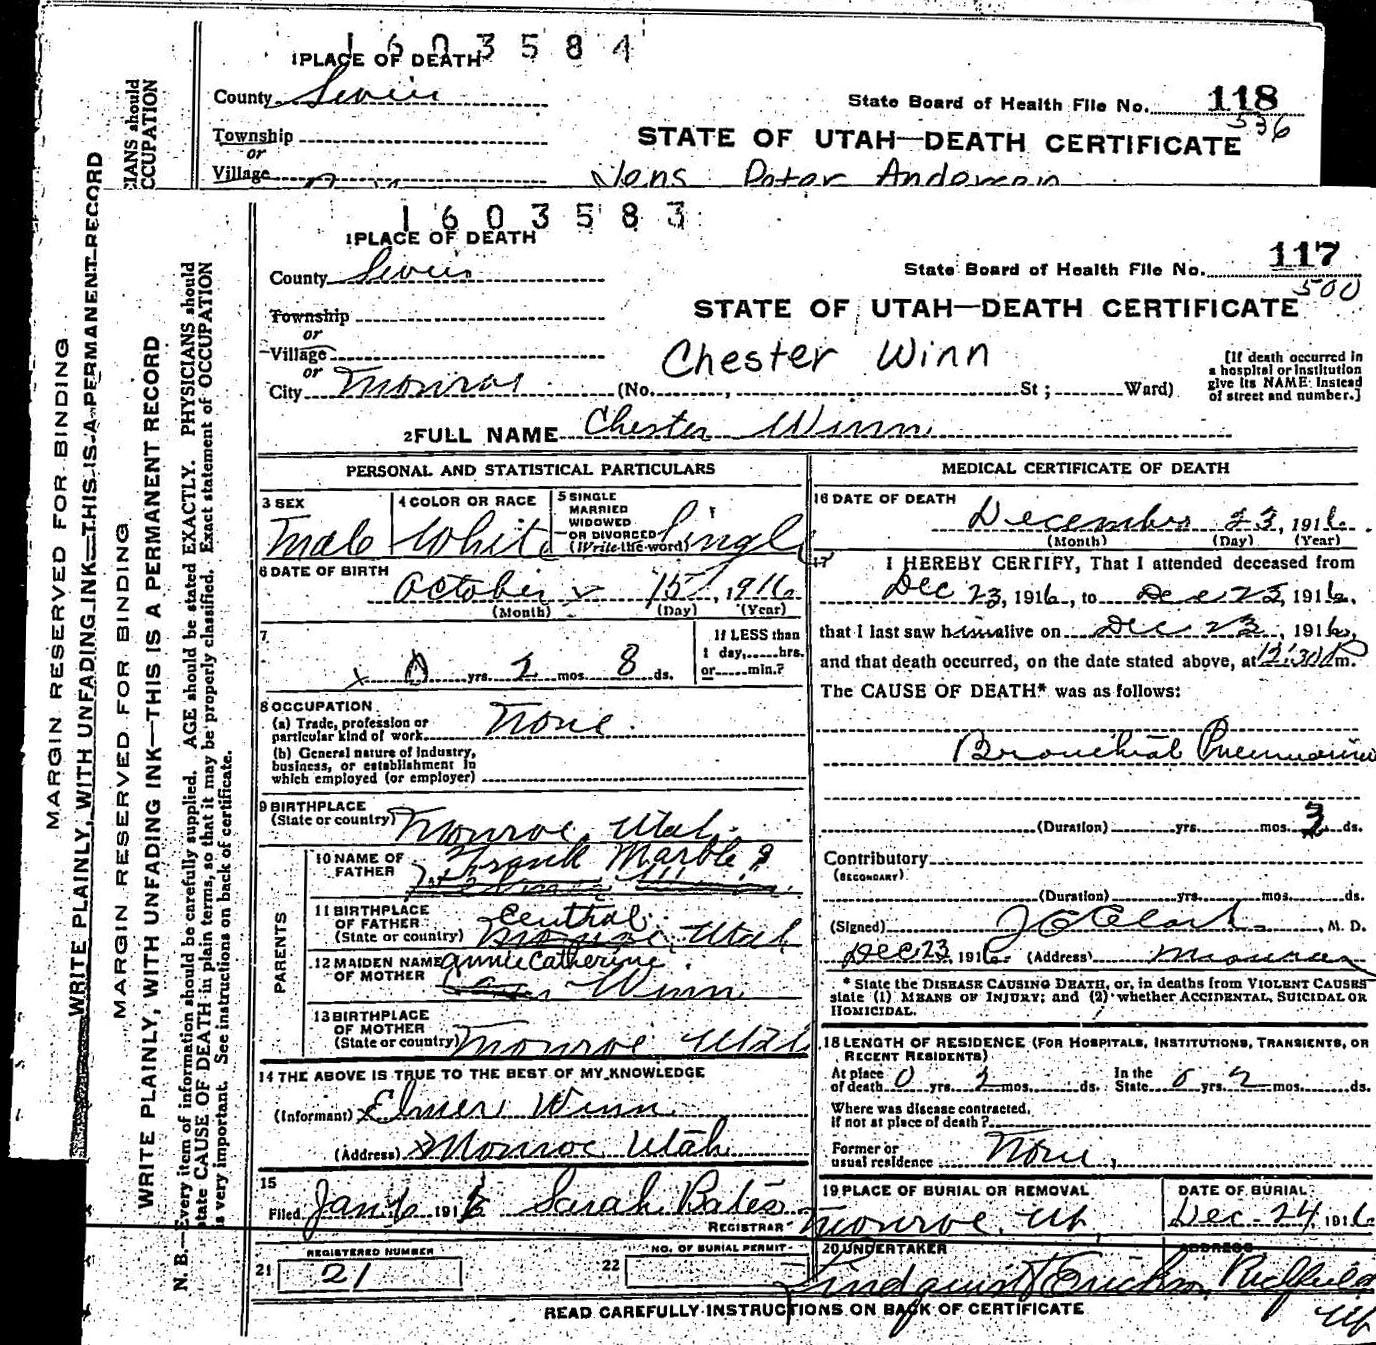 1603584
1 PLACE OF DEATH
County Sevier
State Board of Health File No. 118
536
Township
or
STATE OF UTAH—DEATH CERTIFICATE
Village
Jens Peter Anderson
CIANS should
CCUPATION
MARGIN RESERVED FOR BINDING
WRITE PLAINLY, WITH UNFADING INK—THIS IS A PERMANENT RECORD
MARGIN RESERVED FOR BINDING
WRITE PLAINLY, WITH UNFADING INK—THIS IS A PERMANENT RECORD
N. B.—Every item of information should be carefully supplied. AGE should be stated EXACTLY. PHYSICIANS should
state CAUSE OF DEATH in plain terms, so that it may be properly classified. Exact statement of OCCUPATION
is very important. See instructions on back of certificate.
1603583
1 PLACE OF DEATH
County Sevier
State Board of Health File No. 117
500
Township
or
STATE OF UTAH—DEATH CERTIFICATE
Village
or
Chester Winn
City Monroe (No. , St; Ward)
[If death occurred in
a hospital or institution
give its NAME instead
of street and number.]
2 FULL NAME Chester Winn
PERSONAL AND STATISTICAL PARTICULARS
3 SEX Male
4 COLOR OR RACE White
5 SINGLE
MARRIED
WIDOWED
OR DIVORCED
(Write the word) Single
6 DATE OF BIRTH
October 15, 1916
(Month) (Day) (Year)
7
0 yrs. 2 mos. 8 ds.
If LESS than
1 day, hrs.
or min.?
8 OCCUPATION
(a) Trade, profession or
particular kind of work None
(b) General nature of industry,
business, or establishment in
which employed (or employer)
9 BIRTHPLACE
(State or country) Monroe, Utah.
PARENTS
10 NAME OF
FATHER Frank Marble?
11 BIRTHPLACE
OF FATHER
(State or country) Central Monroe, Utah
12 MAIDEN NAME
OF MOTHER Annie Catherine Winn
13 BIRTHPLACE
OF MOTHER
(State or country) Monroe Utah
14 THE ABOVE IS TRUE TO THE BEST OF MY KNOWLEDGE
(Informant) Elmer Winn
(Address) Monroe Utah
15
Filed Jan 191 Sarah Bates
REGISTRAR
21 REGISTERED NUMBER
21
22 NO. OF BURIAL PERMIT
MEDICAL CERTIFICATE OF DEATH
16 DATE OF DEATH
December 23, 1916.
(Month) (Day) (Year)
17 I HEREBY CERTIFY, That I attended deceased from
Dec 23, 1916, to Dec 23, 1916,
that I last saw him alive on Dec 23, 1916,
and that death occurred, on the date stated above, at 12:30 P m.
The CAUSE OF DEATH* was as follows:
Bronchial Pneumonia
(Duration) yrs. mos. 3 ds.
Contributory
(SECONDARY)
(Duration) yrs. mos. ds.
(Signed) J G Clark, M. D.
Dec 23, 1916. (Address) Monroe
* State the DISEASE CAUSING DEATH, or, in deaths from VIOLENT CAUSES
state (1) MEANS OF INJURY; and (2) whether ACCIDENTAL, SUICIDAL OR
HOMICIDAL.
18 LENGTH OF RESIDENCE (FOR HOSPITALS, INSTITUTIONS, TRANSIENTS, OR
RECENT RESIDENTS)
At place
of death 0 yrs. 2 mos. ds.
In the
State 0 yrs. 2 mos. ds.
Where was disease contracted,
if not at place of death?
Former or
usual residence None,
19 PLACE OF BURIAL OR REMOVAL
Monroe, Ut,
DATE OF BURIAL
Dec. 24, 1916
20 UNDERTAKER
ADDRESS
Lindquist Erickson Richfield
Ut
READ CAREFULLY INSTRUCTIONS ON BACK OF CERTIFICATE